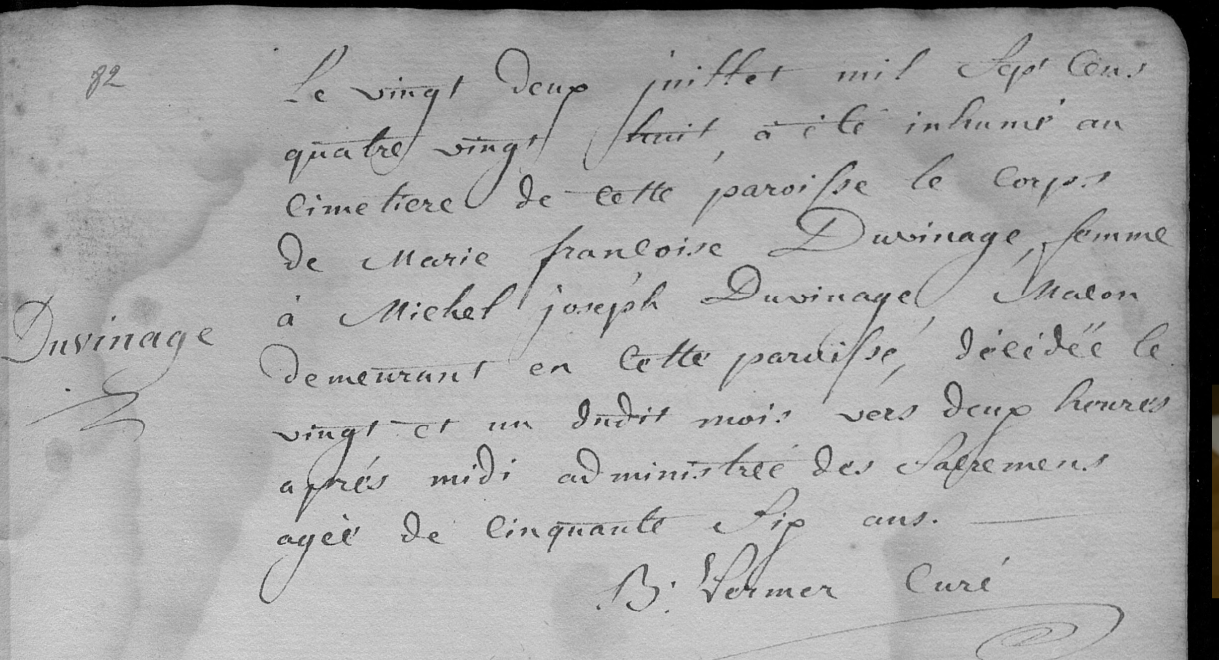 82
Le vingt deux juillet mil Sept Cens
quatre vingt huit, à été inhumé au
Cimetiere de Cette paroisse le Corps
de Marie françoise Duvinage, femme
à Michel joséph Duvinage, Macon
Duvinage
demeurant en Cette paroisse, décédée le
vingt et un dudit mois vers deux heures
aprés midi administrée des Sacremens
agée de Cinquante Six ans.
B: Vermer Curé